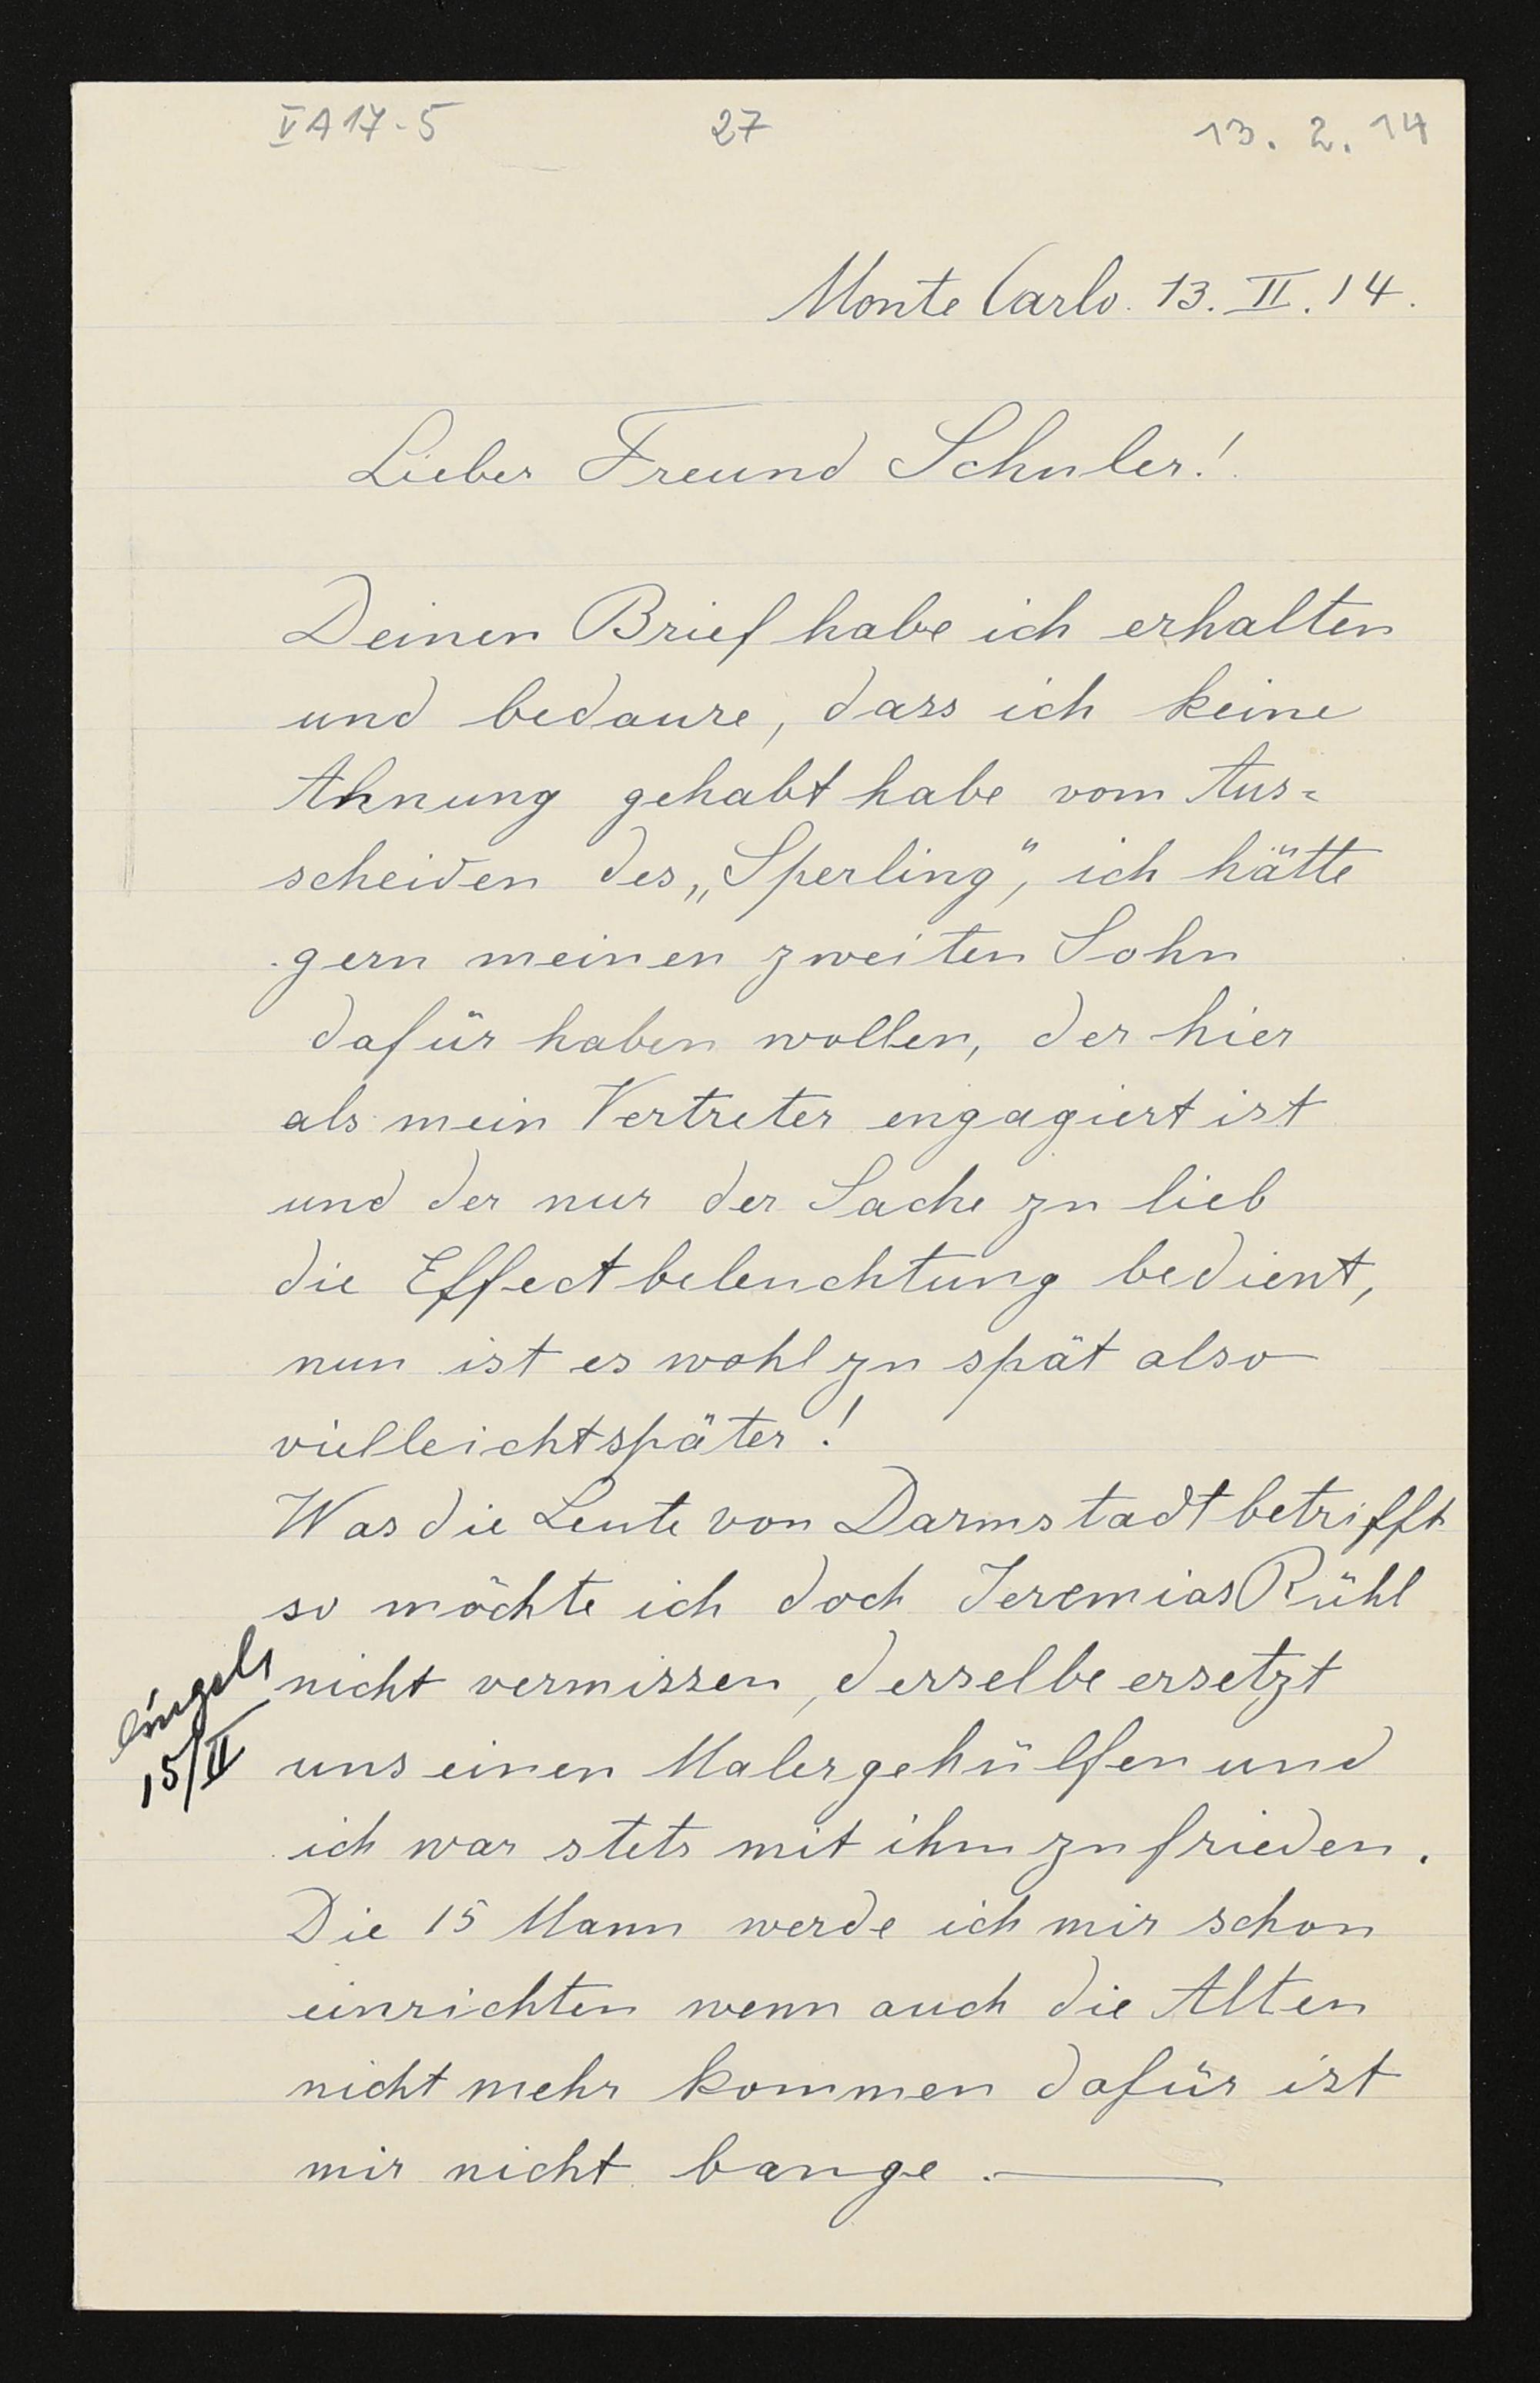 VA17-5 27 13. 2. 14
Monte Carlo. 13. II. 14.
Lieber Freund Schuler!
Deinen Brief habe ich erhalten
und bedaure, dass ich keine
Ahnung gehabt habe vom Aus=
scheiden des „Sperling“, ich hätte
gern meinen zweiten Sohn
dafür haben wollen, der hier
als mein Vertreter engagiert ist
und der nur der Sache zu lieb
die Effectbeleuchtung bedient,
nun ist es wohl zu spät also
vielleicht später!
Was die Leute von Darmstadt betrifft
so möchte ich doch Jeremias Rühl
nicht vermissen, derselbe ersetzt
15/II
uns einen Malergehülfen und
ich war stets mit ihm zufrieden.
Die 15 Mann werde ich mir schon
einrichten wenn auch die Alten
nicht mehr kommen dafür ist
mir nicht bange.—